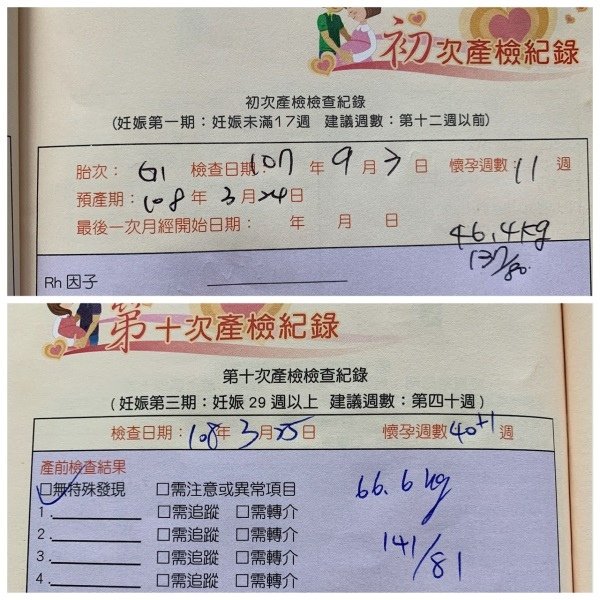 初次產檢紀錄
初次產檢檢查紀錄
(妊娠第一期：妊娠未滿17週 建議週數：第十二週以前)
胎次：G1 檢查日期：107 年 9 月 3 日 懷孕週數：11 週
預產期：108 年 3 月 24 日
最後一次月經開始日期： 年 月 日
46.4kg
137/80
Rh 因子
第十次產檢紀錄
第十次產檢檢查紀錄
(妊娠第三期：妊娠 29 週以上 建議週數：第四十週)
檢查日期：108 年 3 月 25 日 懷孕週數 40+1 週
產前檢查結果
☑無特殊發現 □需注意或異常項目
66.6 kg
1. □需追蹤 □需轉介
2. □需追蹤 □需轉介
141/81
3. □需追蹤 □需轉介
4. □需追蹤 □需轉介